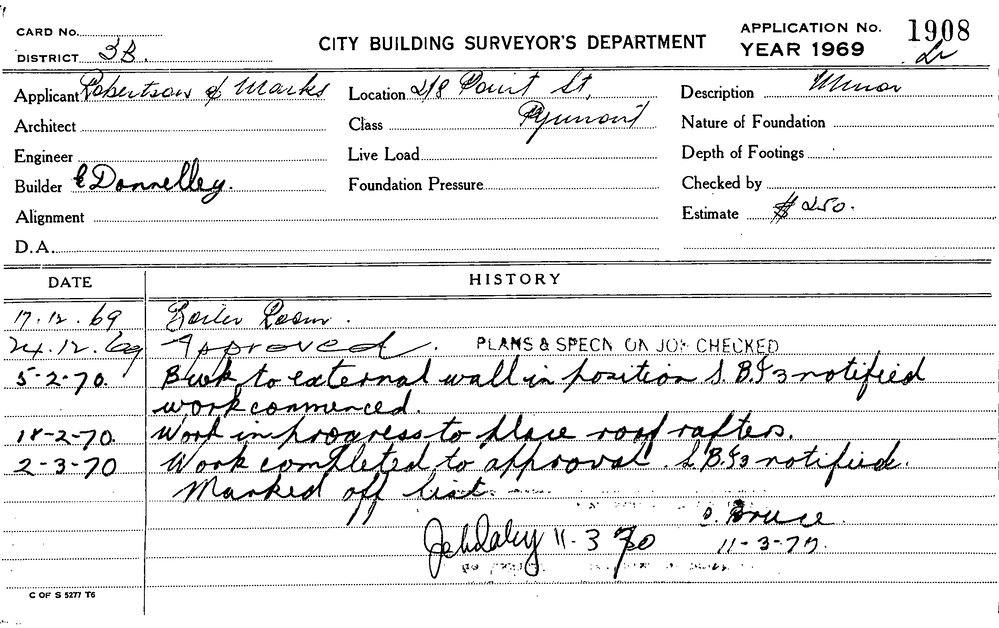 CARD No.
DISTRICT 3B.
CITY BUILDING SURVEYOR'S DEPARTMENT
APPLICATION No. 1908
YEAR 1969
Applicant Robertson & Marks Location 2/8 Point St, Description Minor
Architect Class Pyrmont Nature of Foundation
Engineer Live Load Depth of Footings
Builder E Donnelley. Foundation Pressure Checked by
Alignment Estimate $250.
D.A.
DATE HISTORY
17.12.69 Boiler Room.
24.12.69 Approved. PLANS & SPECN ON JOB CHECKED
5-2-70. Brick to external wall in position S.B.I3 notified
work commenced.
18-2-70. Work in progress to place roof rafters.
2-3-70 Work completed to approval. S.B.I3 notified.
Marked off list.
Bruce
11-3-70 11-3-70.
C OF S 5277 T6